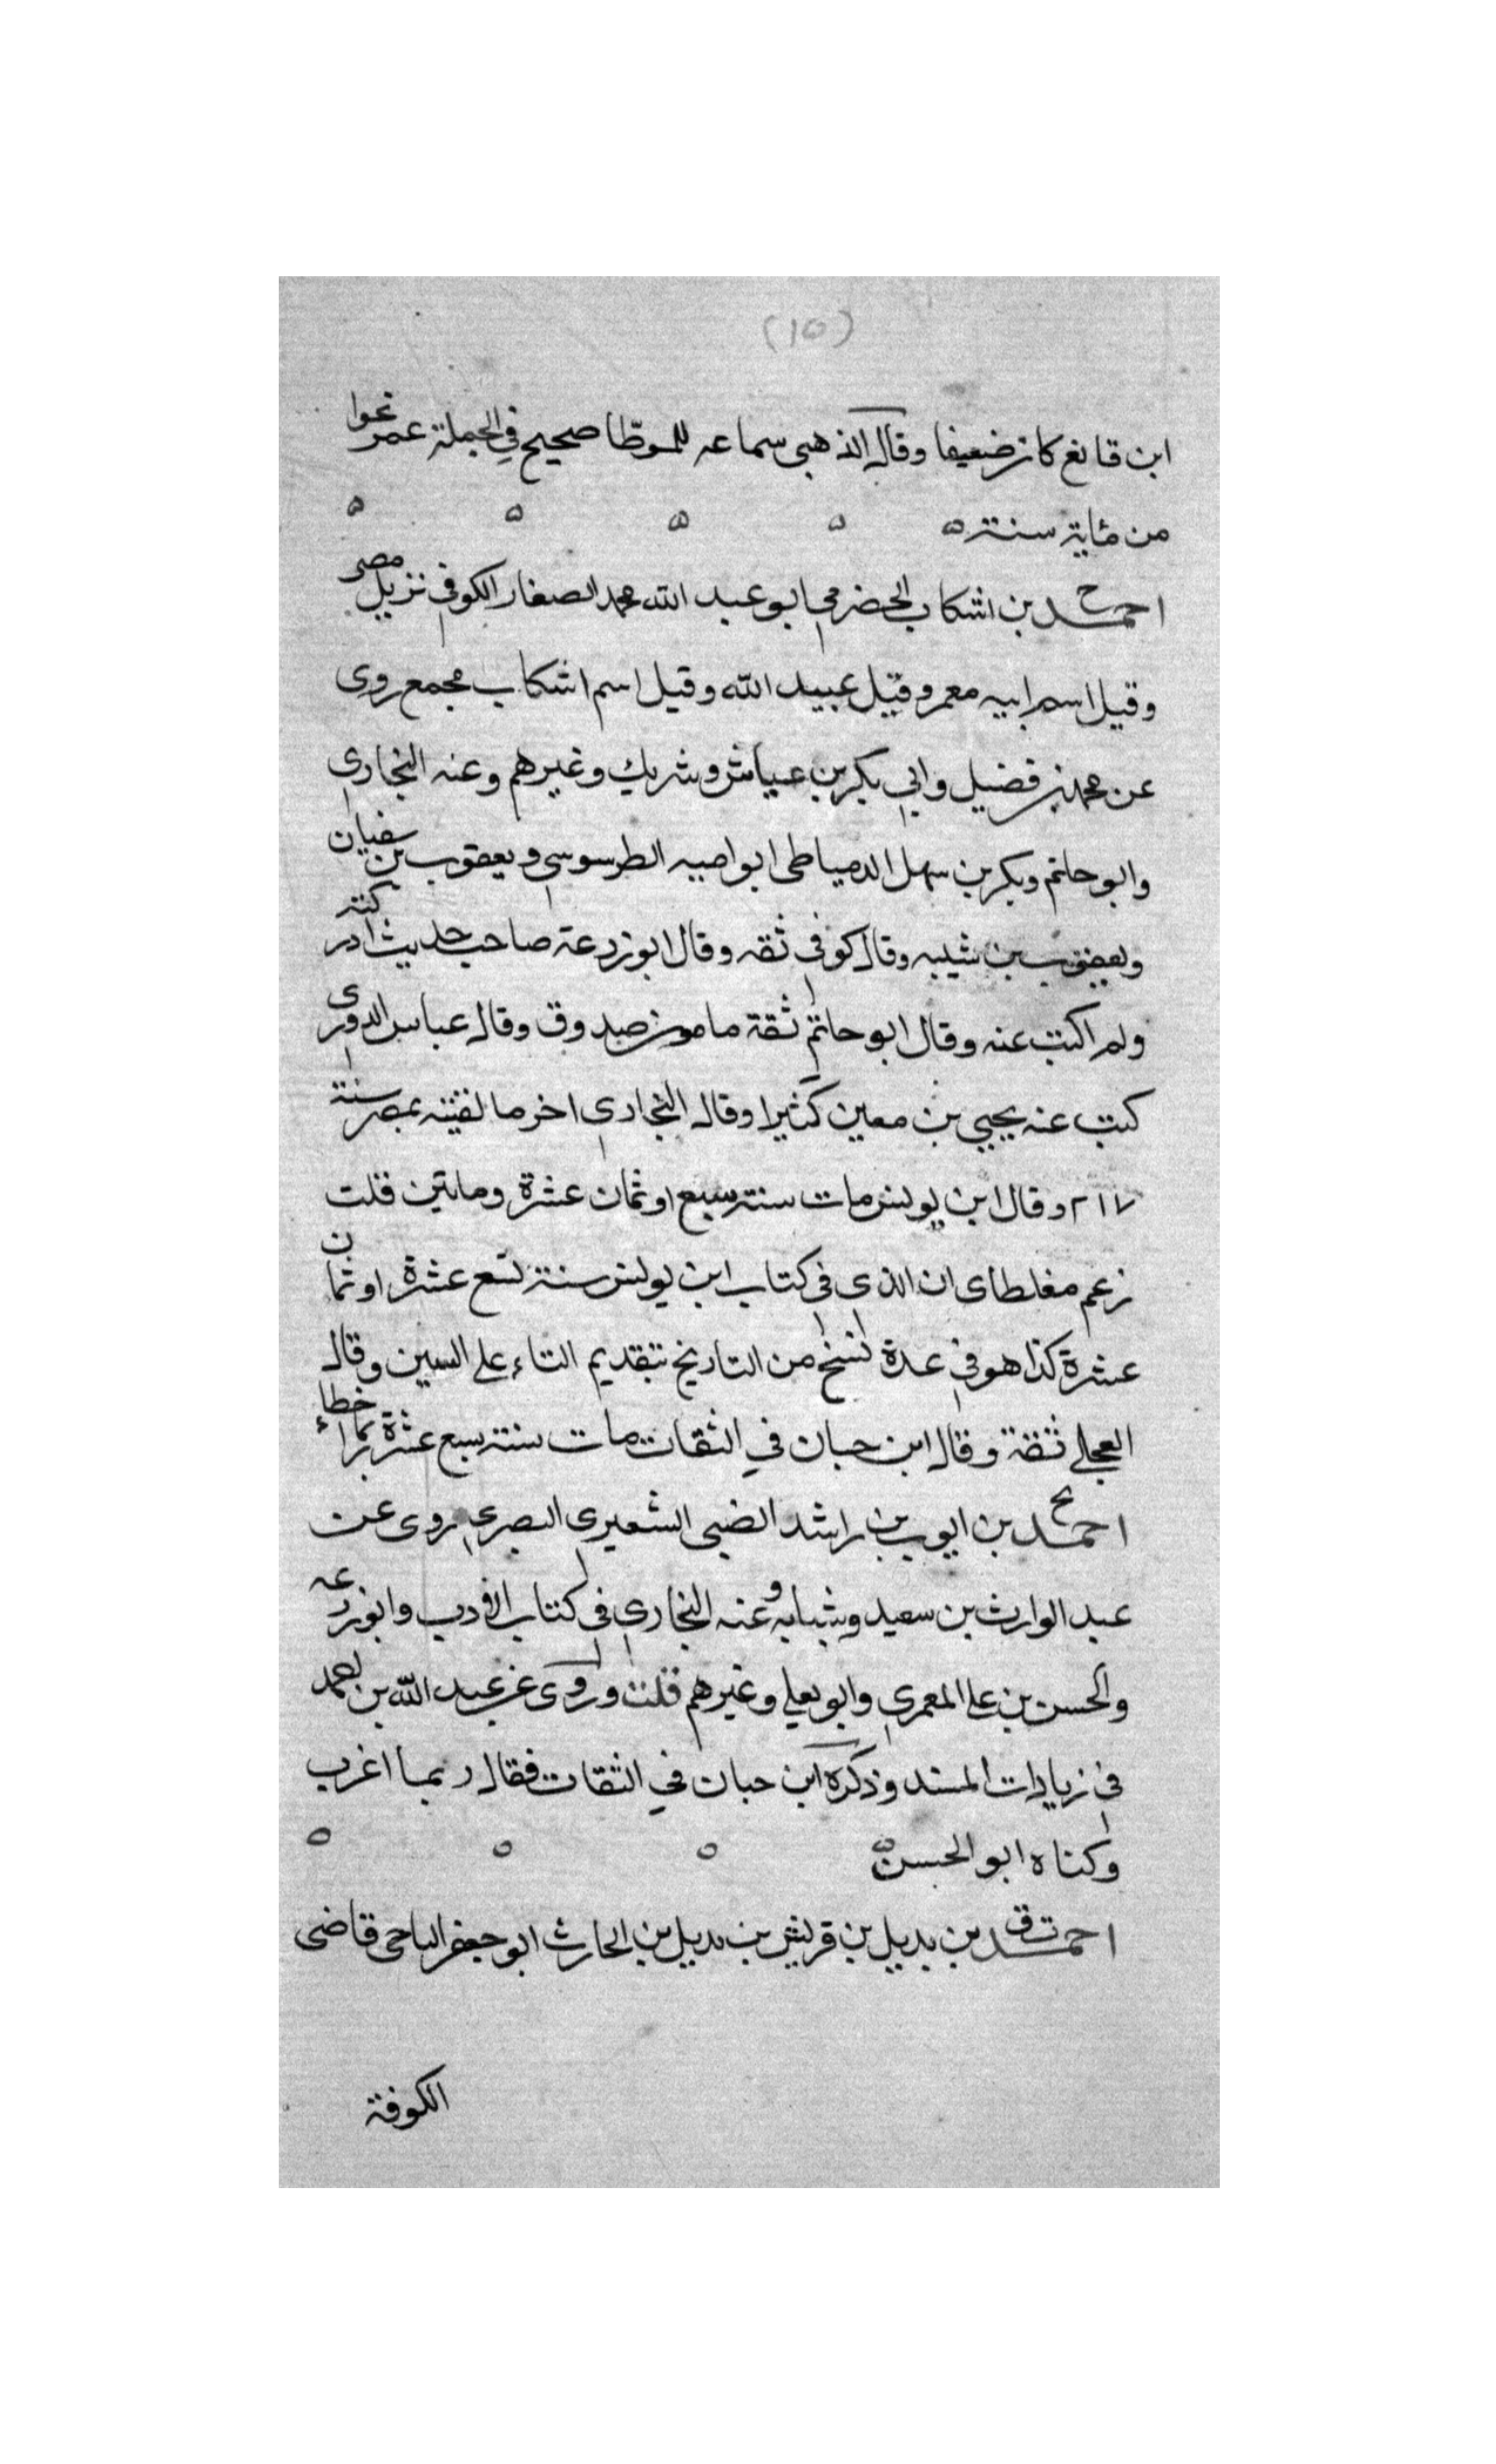 (١٥)
ابن قانع كان ضعيفا وقال الذهبي سماعه للموطا صحيح في الجملة عمر نحوا
من ماية سنة ه ه ه ه ه
احمد بن اشكاب الحضرمي ابو عبد الله محمد الصفار الكوفي نزيل مصر
وقيل اسم ابيه معمر وقيل عبيد الله وقيل اسم اشكاب مجمع روى
عن محمد بن فضيل وابي بكر بن عياش وشريك وغيرهم وعنه البخاري
وابو حاتم وبكر بن سهل الدمياطي ابو اميه الطرسوسي ويعقوب بن سفيان
ويعقوب بن شيبه وقال كوفي ثقه وقال ابو زرعة صاحب حديث ادركته
ولم اكتب عنه وقال ابو حاتم ثقة مامون صدوق وقال عباس الدوري
كتب عنه يحيي بن معين كثيرا وقال البخاري اخر ما لقيته بمصر سنة
٢١٧ وقال ابن يونس مات سنة سبع او ثمان عشرة ومايتين قلت
زعم مغلطاى ان الذي في كتاب ابن يونس سنة تسع عشرة او ثمان
عشرة كذا هو في عدة نسخ من التاريخ بتقديم التاء على السين وقال
العجلي ثقة وقال ابن حبان في الثقات مات سنة سبع عشرة ربما اخطاء
احمد بن ايوب بن راشد الضبي الشعيري البصري روى عن
عبد الوارث بن سعيد وشبابه وعنه البخاري في كتاب الادب وابو زرعه
والحسن بن علي المعمري وابو يعلي وغيرهم قلت وروى عن عبد الله بن احمد
في زيادات المسند وذكره ابن حبان في الثقات فقال ربما اغرب
وكناه ابو الحسن ه ه ه ه
احمد بن بديل بن قريش بن بديل بن الحارث ابو جعفر اليامي قاضي
الكوفة